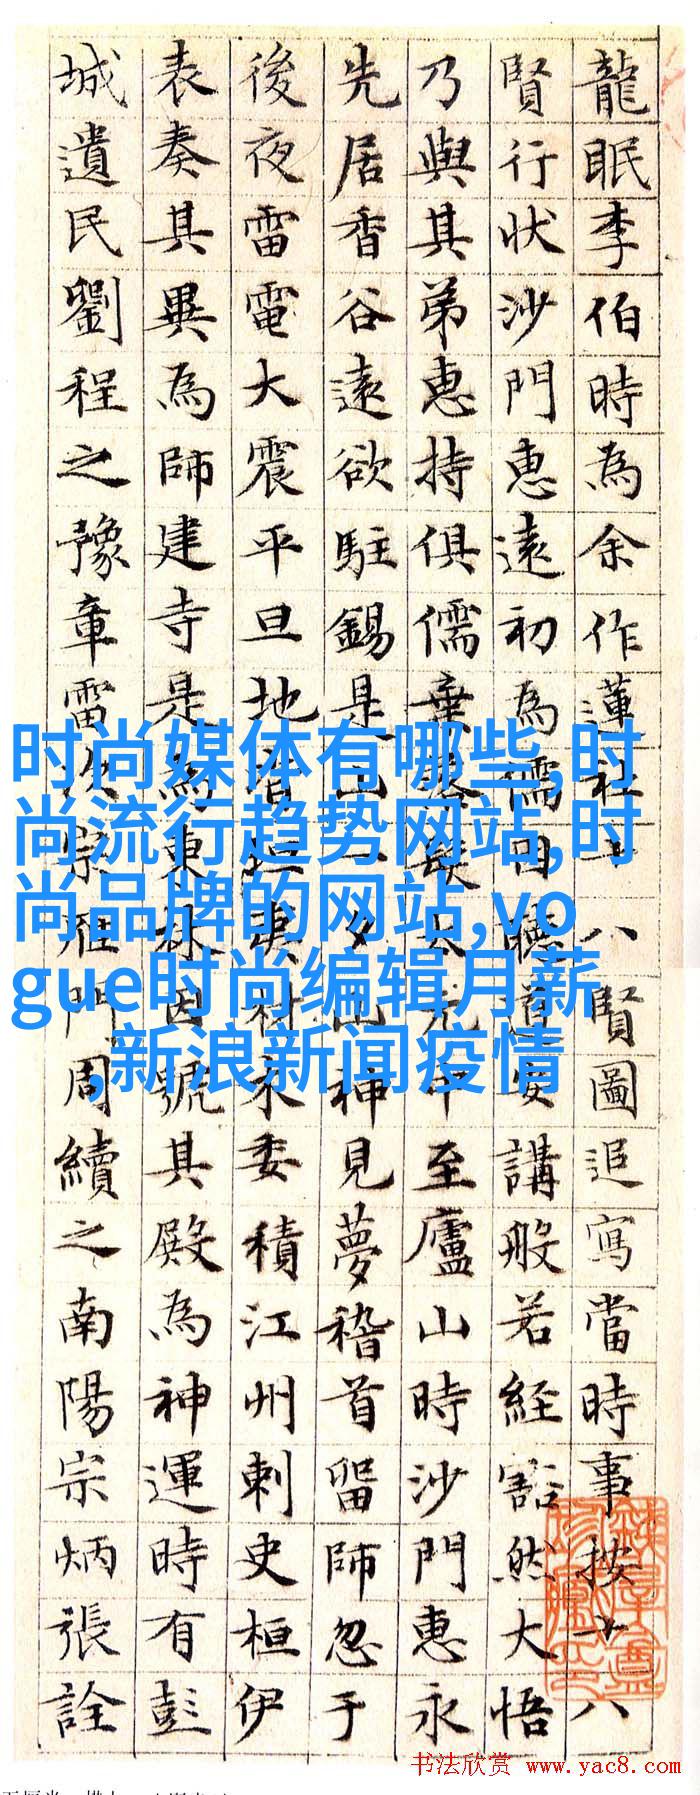 龍眠李伯時為余作蓮社十八賢圖追寫當時事按十八
賢行狀沙門惠遠初為儒因聽道安講般若經豁然大悟
乃與其弟惠持俱儒棄髮太元中至廬山時沙門惠永
先居香谷遠欲駐錫是山一夕山神見夢稽首留師忽于
後夜雷電大震平旦地皆坦夷材木委積江州刺史桓伊
表奏其異為師建寺是為東林因號其殿為神運時有彭
城遺民劉程之豫章雷次宗雁門周續之南陽宗炳張詮
时尚媒体有哪些,时
尚流行趋势网站,时
尚品牌的网站,vo
gue时尚编辑月薪
,新浪新闻疫情
书法欣赏 www.yac8.com